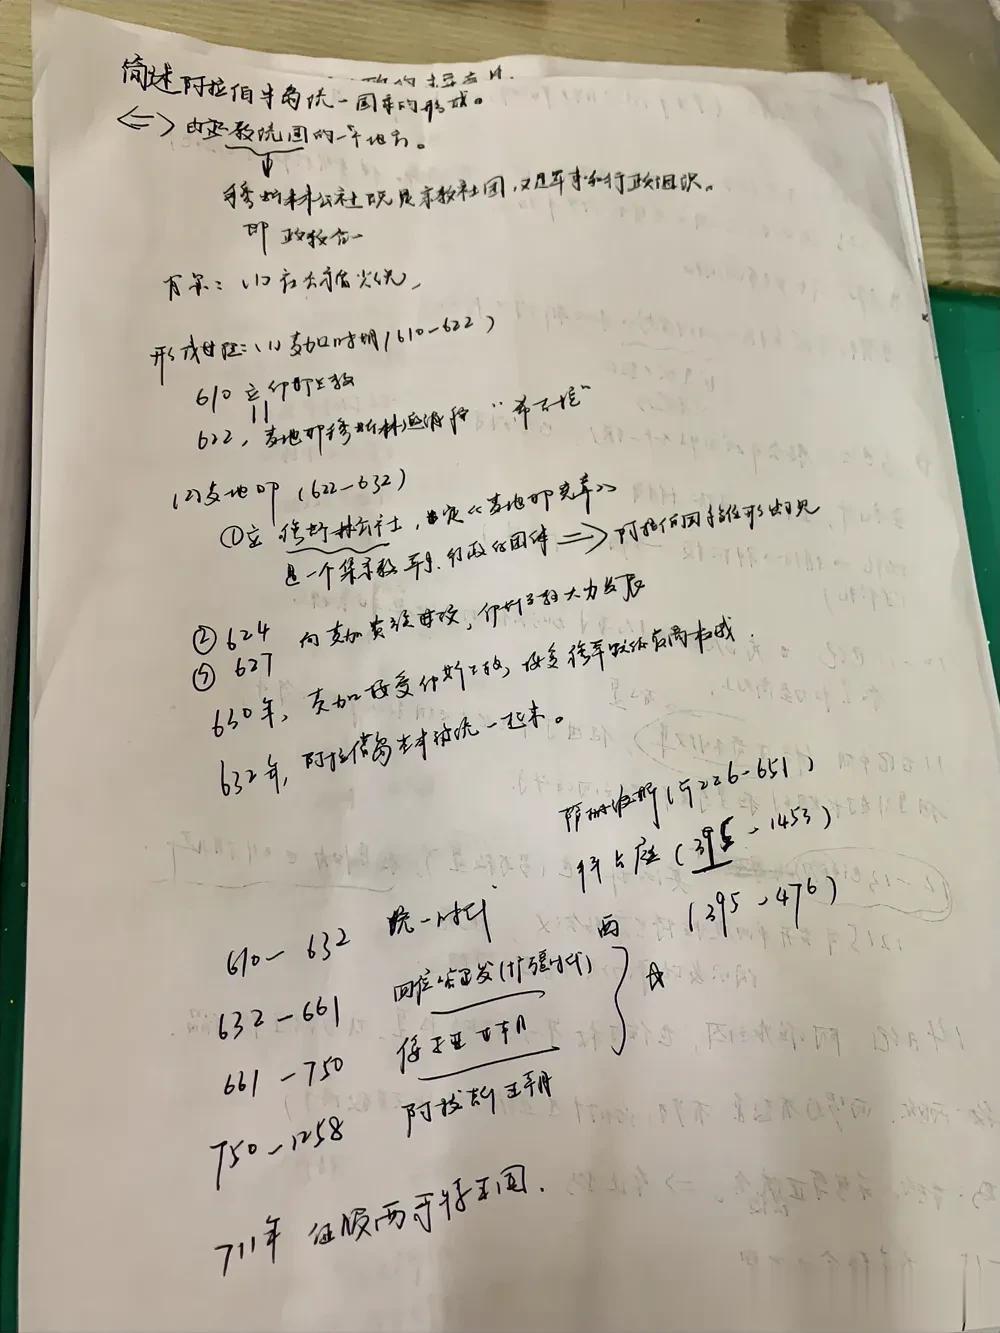 简述阿拉伯半岛统一国家的形成。
<=> 由 教统国的一 。
↓
穆斯林公社既是宗教社团，又是军事和行政组织。
即 政教合一
背景：(1)
形成过程：(1) 麦加时期(610-622)
610 立伊斯兰教
622，麦地那穆斯林 “希吉拉”
(2) 麦地那 (622-632)
①立 穆斯林公社，定《麦地那宪章》
是一个集宗教 军事、行政的团体 => 阿拉伯国家 形出现
② 624 向麦加贵族进攻，伊斯兰教大力发展
④ 627
630年，麦加接受伊斯兰教，接受穆罕默德的最高权威
632年，阿拉伯半岛基本被统一起来。
萨珊波斯(与226-651)
拜占庭(395-1453)
西 (395-476)
610-632 统一时代
632-661 四位哈里发(扩疆时代)
661-750 倭马亚王朝
750-1258 阿拔斯王朝
711年 征服西哥特王国.